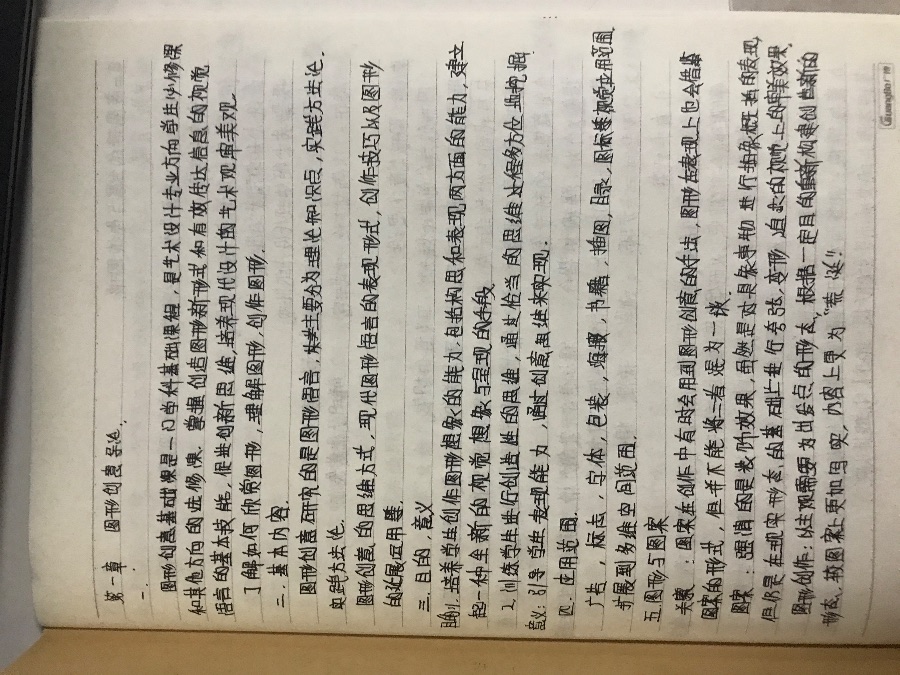 第一章 图形创意导论.
一.
图形创意基础课是一门学科基础课程，是艺术设计专业方向学生必修课
和其他方向的选修课. 掌握创造图形新形式和有效传达信息的视觉
语言的基本技能，促进创新思维，培养现代设计的艺术观审美观.
了解如何欣赏图形，理解图形，创作图形.
二. 基本内容.
图形创意研究的是图形语言，主要分为理论知识点，实践方法论.
实践方法论.
图形创意的思维方式，现代图形语言的表现形式，创作技巧以及图形
的延展应用等.
三. 目的，意义
目的：1. 培养学生创作图形想象的能力，包括构思和表现两方面的能力，建立
起一种全新的视觉想象与呈现的手段
2. 训练学生进行创造性的思维，通过恰当的思维过程多方位地挖掘.
意义：引导学生表现能力，通过创意思维来实现.
四. 应用范围.
广告，标志，字体，包装，海报，书籍，插图，目录，图标等视觉应用范围.
扩展到多维空间范围.
五. 图形与图案
关系：图案在创作中有时会用到图形创意的手法，图形在表现上也会借鉴
图案的形式，但并不能将二者混为一谈.
图案：强调的是装饰效果，虽然是对具象事物进行抽象概括的表现，
但仍是在现实形态的基础上进行夸张、变形，追求的视觉上的审美效果.
图形创作：以主观需要为出发点的形态，根据一定目的重新构建创造新的
形态，较图案上更加写实，内容上更为“荒诞”!
Guangbo广博